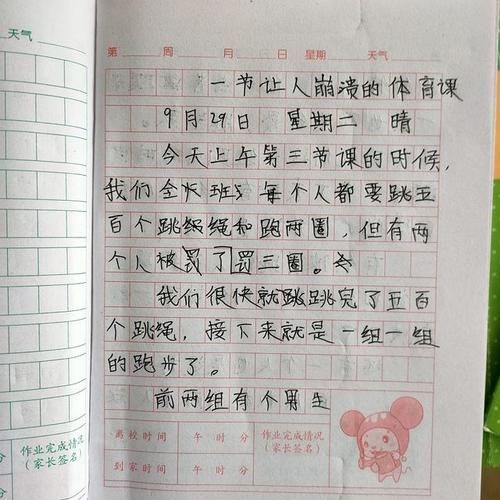 天气
第 周 月 日 星期 天气
一节让人崩溃的体育课
9月29日 星期二 晴
今天上午第三节课的时候，
我们全班每个人都要跳五
百个跳绳和跑两圈，但有两
个人被罚了罚三圈。
我们很快就跳跳完了五百
个跳绳，接下来就是一组一组
的跑步了。
前两组有个男生
离校时间 午 时 分 作业完成情况
（家长签名）
到家时间 午 时 分
作业完成情况
（家长签名）
分